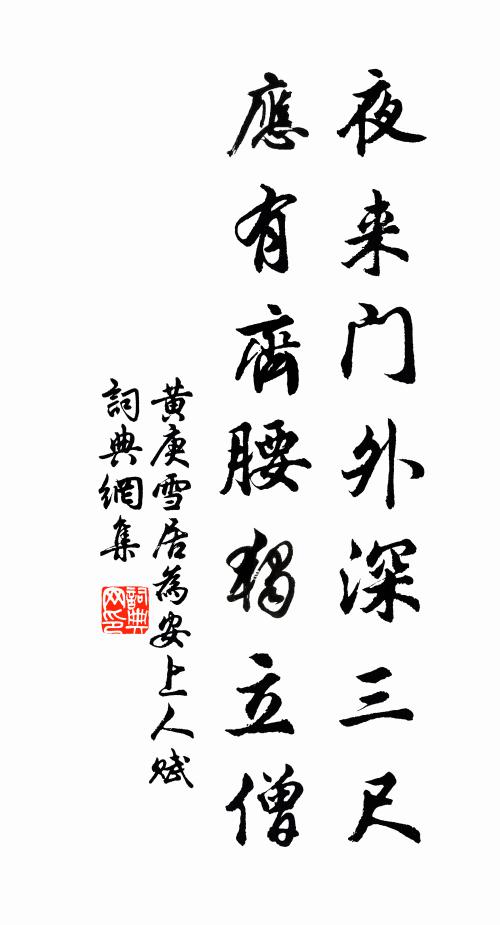 夜来门外深三尺
應有齊腰獨立僧
黄庚雪居為安上人賦
詞典網集
詞典网印